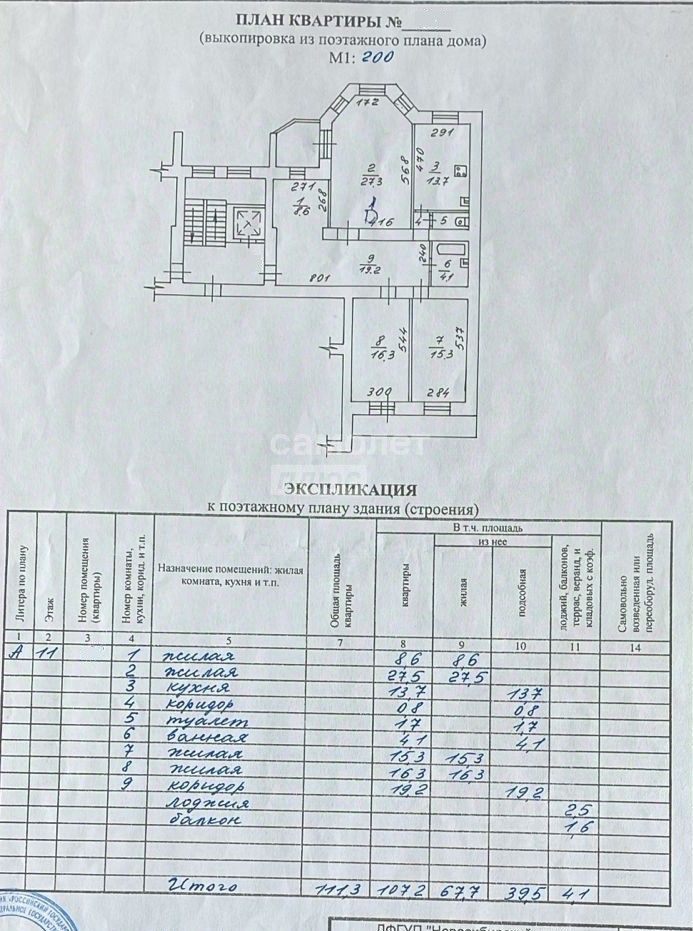 ПЛАН КВАРТИРЫ №
(выкопировка из поэтажного плана дома)
М1: 200
172
291
2
27.3
568
470
3
13.7
271
1
8.6
268
416
4
5
9
19.2
240
6
4.1
801
8
16.3
544
7
15.3
537
300
284
самолет
ЭКСПЛИКАЦИЯ
к поэтажному плану здания (строения)
Литера по плану
Этаж
Номер помещения (квартиры)
Номер комнаты, кухни, корид. и т.п.
Назначение помещений: жилая комната, кухня и т.п.
Общая площадь квартиры
В т.ч. площадь
из нее
квартиры
жилая
подсобная
лоджий, балконов, террас, веранд, и кладовых с коэф.
Самовольно возведенная или переоборул. площадь
1 2 3 4 5 7 8 9 10 11 14
А 11 1 жилая 8,6 8,6
2 жилая 27,5 27,5
3 кухня 13,7 13,7
4 коридор 0,8 0,8
5 туалет 1,7 1,7
6 ванная 4,1 4,1
7 жилая 15,3 15,3
8 жилая 16,3 16,3
9 коридор 19,2 19,2
лоджия 2,5
балкон 1,6
Итого 111,3 107,2 67,7 39,5 4,1
ДФГУП "Новосибирский